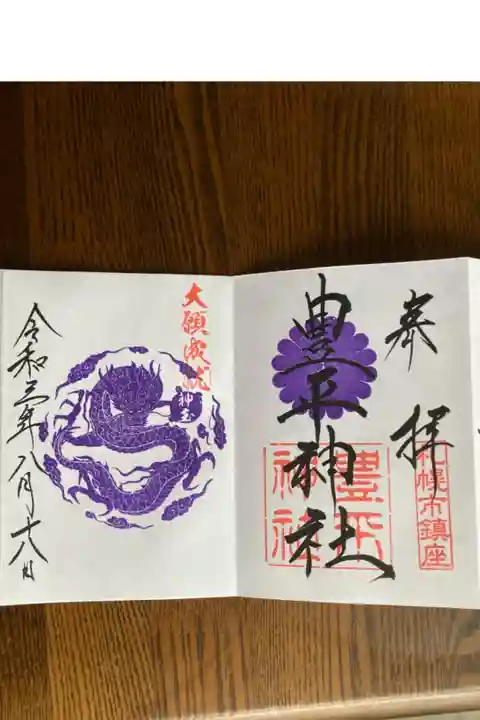 奉拝
札幌市鎮座
豊平神社
豊平
神社
大願成就
神玉
令和三年八月十八日